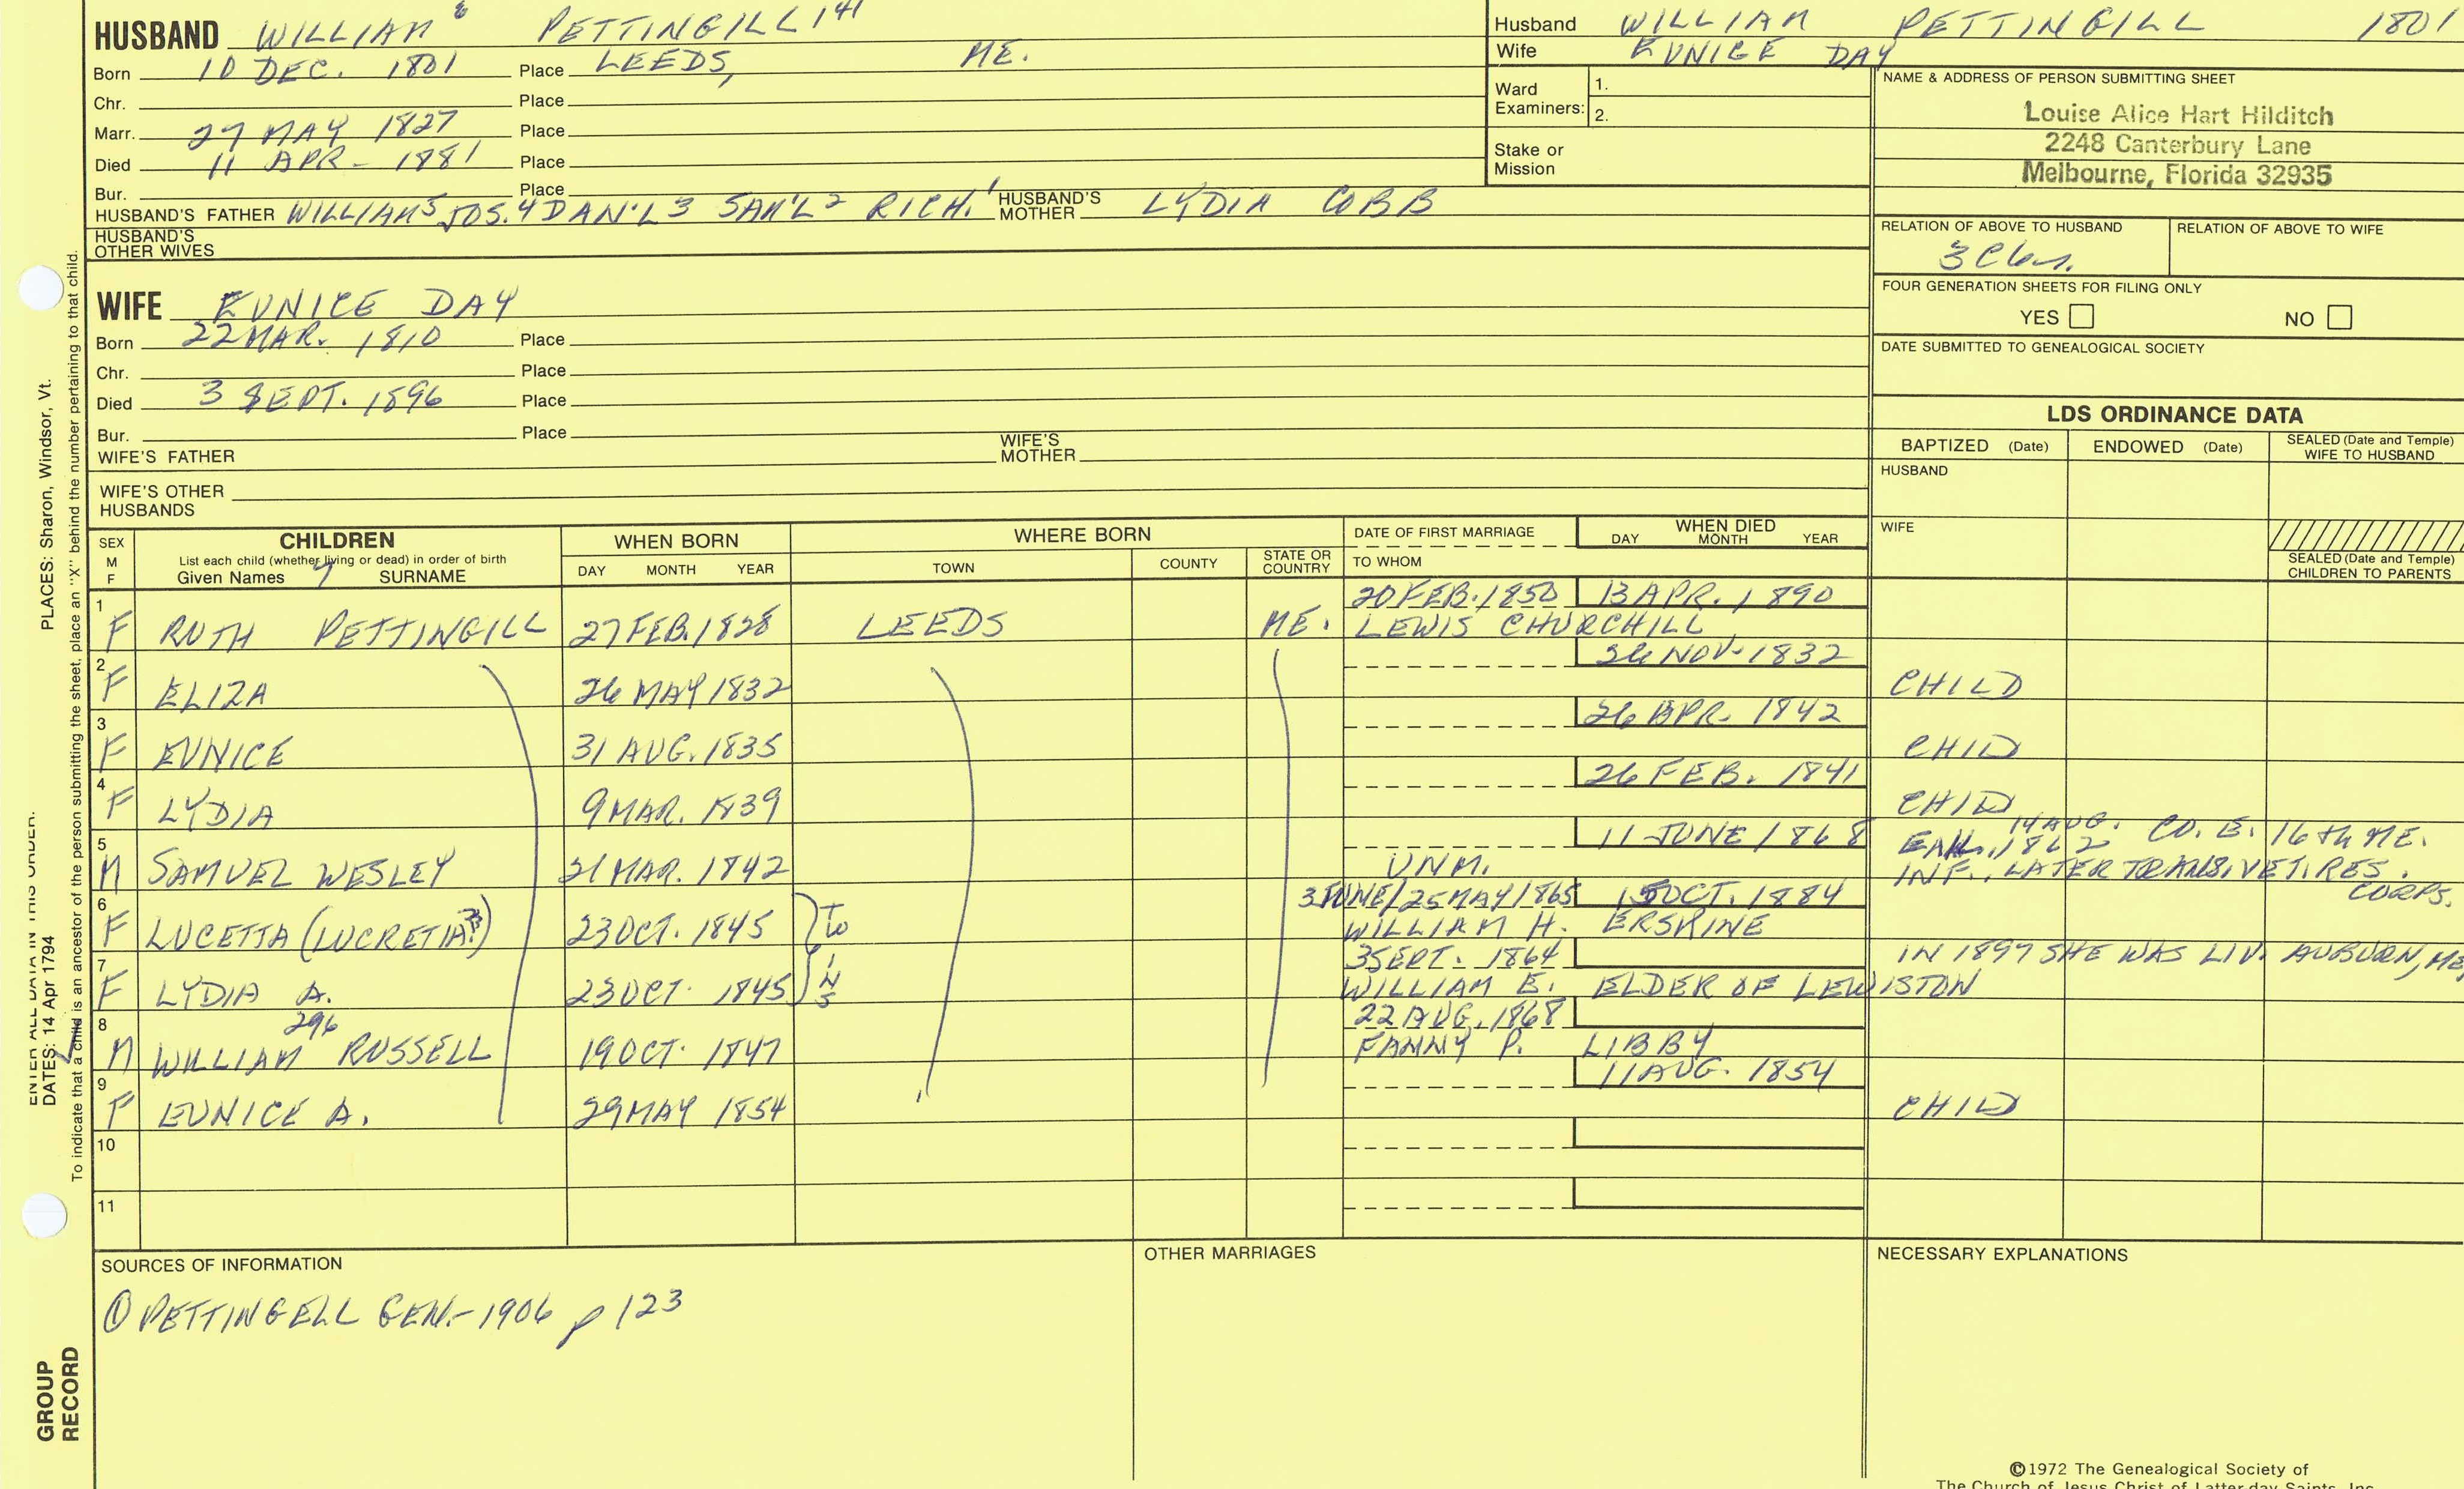 HUSBAND WILLIAM 6 PETTINGILL 141
Born 10 DEC. 1801 Place LEEDS, ME.
Chr. Place
Marr. 27 MAY 1827 Place
Died 11 APR- 1881 Place
Bur. Place
HUSBAND'S FATHER WILLIAM 5 JOS. 4 DAN'L 3 SAM'L 2 RICH. 1 HUSBAND'S MOTHER LYDIA COBB
HUSBAND'S
OTHER WIVES
WIFE EUNICE DAY
Born 22 MAR. 1810 Place
Chr. Place
Died 3 SEPT. 1896 Place
Bur. Place
WIFE'S FATHER WIFE'S MOTHER
WIFE'S OTHER
HUSBANDS
Husband WILLIAM PETTINGILL 1801
Wife EUNICE DAY
Ward
Examiners: 1.
2.
Stake or
Mission
NAME & ADDRESS OF PERSON SUBMITTING SHEET
Louise Alice Hart Hilditch
2248 Canterbury Lane
Melbourne, Florida 32935
RELATION OF ABOVE TO HUSBAND RELATION OF ABOVE TO WIFE
FOUR GENERATION SHEETS FOR FILING ONLY
YES NO
DATE SUBMITTED TO GENEALOGICAL SOCIETY
LDS ORDINANCE DATA
BAPTIZED (Date) ENDOWED (Date) SEALED (Date and Temple)
WIFE TO HUSBAND
HUSBAND
WIFE
SEALED (Date and Temple)
CHILDREN TO PARENTS
SEX
M
F
CHILDREN
List each child (whether living or dead) in order of birth
Given Names 7 SURNAME
WHEN BORN
DAY MONTH YEAR
WHERE BORN
TOWN COUNTY STATE OR
COUNTRY
DATE OF FIRST MARRIAGE
TO WHOM
WHEN DIED
DAY MONTH YEAR
1 20 FEB. 1850 13 APR. 1890
F RUTH PETTINGILL 27 FEB. 1828 LEEDS ME. LEWIS CHURCHILL
2 26 NOV- 1832
F ELIZA 26 MAY 1832 CHILD
3 26 APR. 1842
F EUNICE 31 AUG. 1835 CHILD
4 26 FEB. 1841
F LYDIA 9 MAR. 1839 CHILD
5 11 JUNE 1868 14 AUG. CO. E. 16th ME.
M SAMUEL WESLEY 21 MAR. 1842 UNM. 1862 INF., LATER VET. RES.
CORPS.
6 3 JUNE/25 MAY 1865 15 OCT. 1884
F LUCETTA (LUCRETIA?) 23 OCT. 1845 WILLIAM H. ERSKINE
7 3 SEPT. 1864 IN 1897 SHE WAS LIV. AUBURN, ME
F LYDIA A. 23 OCT. 1845 WILLIAM E. ELDER OF LEWISTON
8 296 22 AUG. 1868
M WILLIAM RUSSELL 19 OCT. 1847 FANNY P. LIBBY
9 11 AUG. 1854
F EUNICE A. 29 MAY 1854 CHILD
10
11
SOURCES OF INFORMATION
① PETTINGELL GEN.- 1906 p 123
OTHER MARRIAGES
NECESSARY EXPLANATIONS
©1972 The Genealogical Society of
The Church of Jesus Christ of Latter-day Saints, Inc.
PLACES: Sharon, Windsor, Vt.
To indicate that a child is an ancestor of the person submitting the sheet, place an "X" behind the number pertaining to that child.
ENTER ALL DATA IN THIS ORDER:
DATES: 14 Apr 1794
GROUP
RECORD